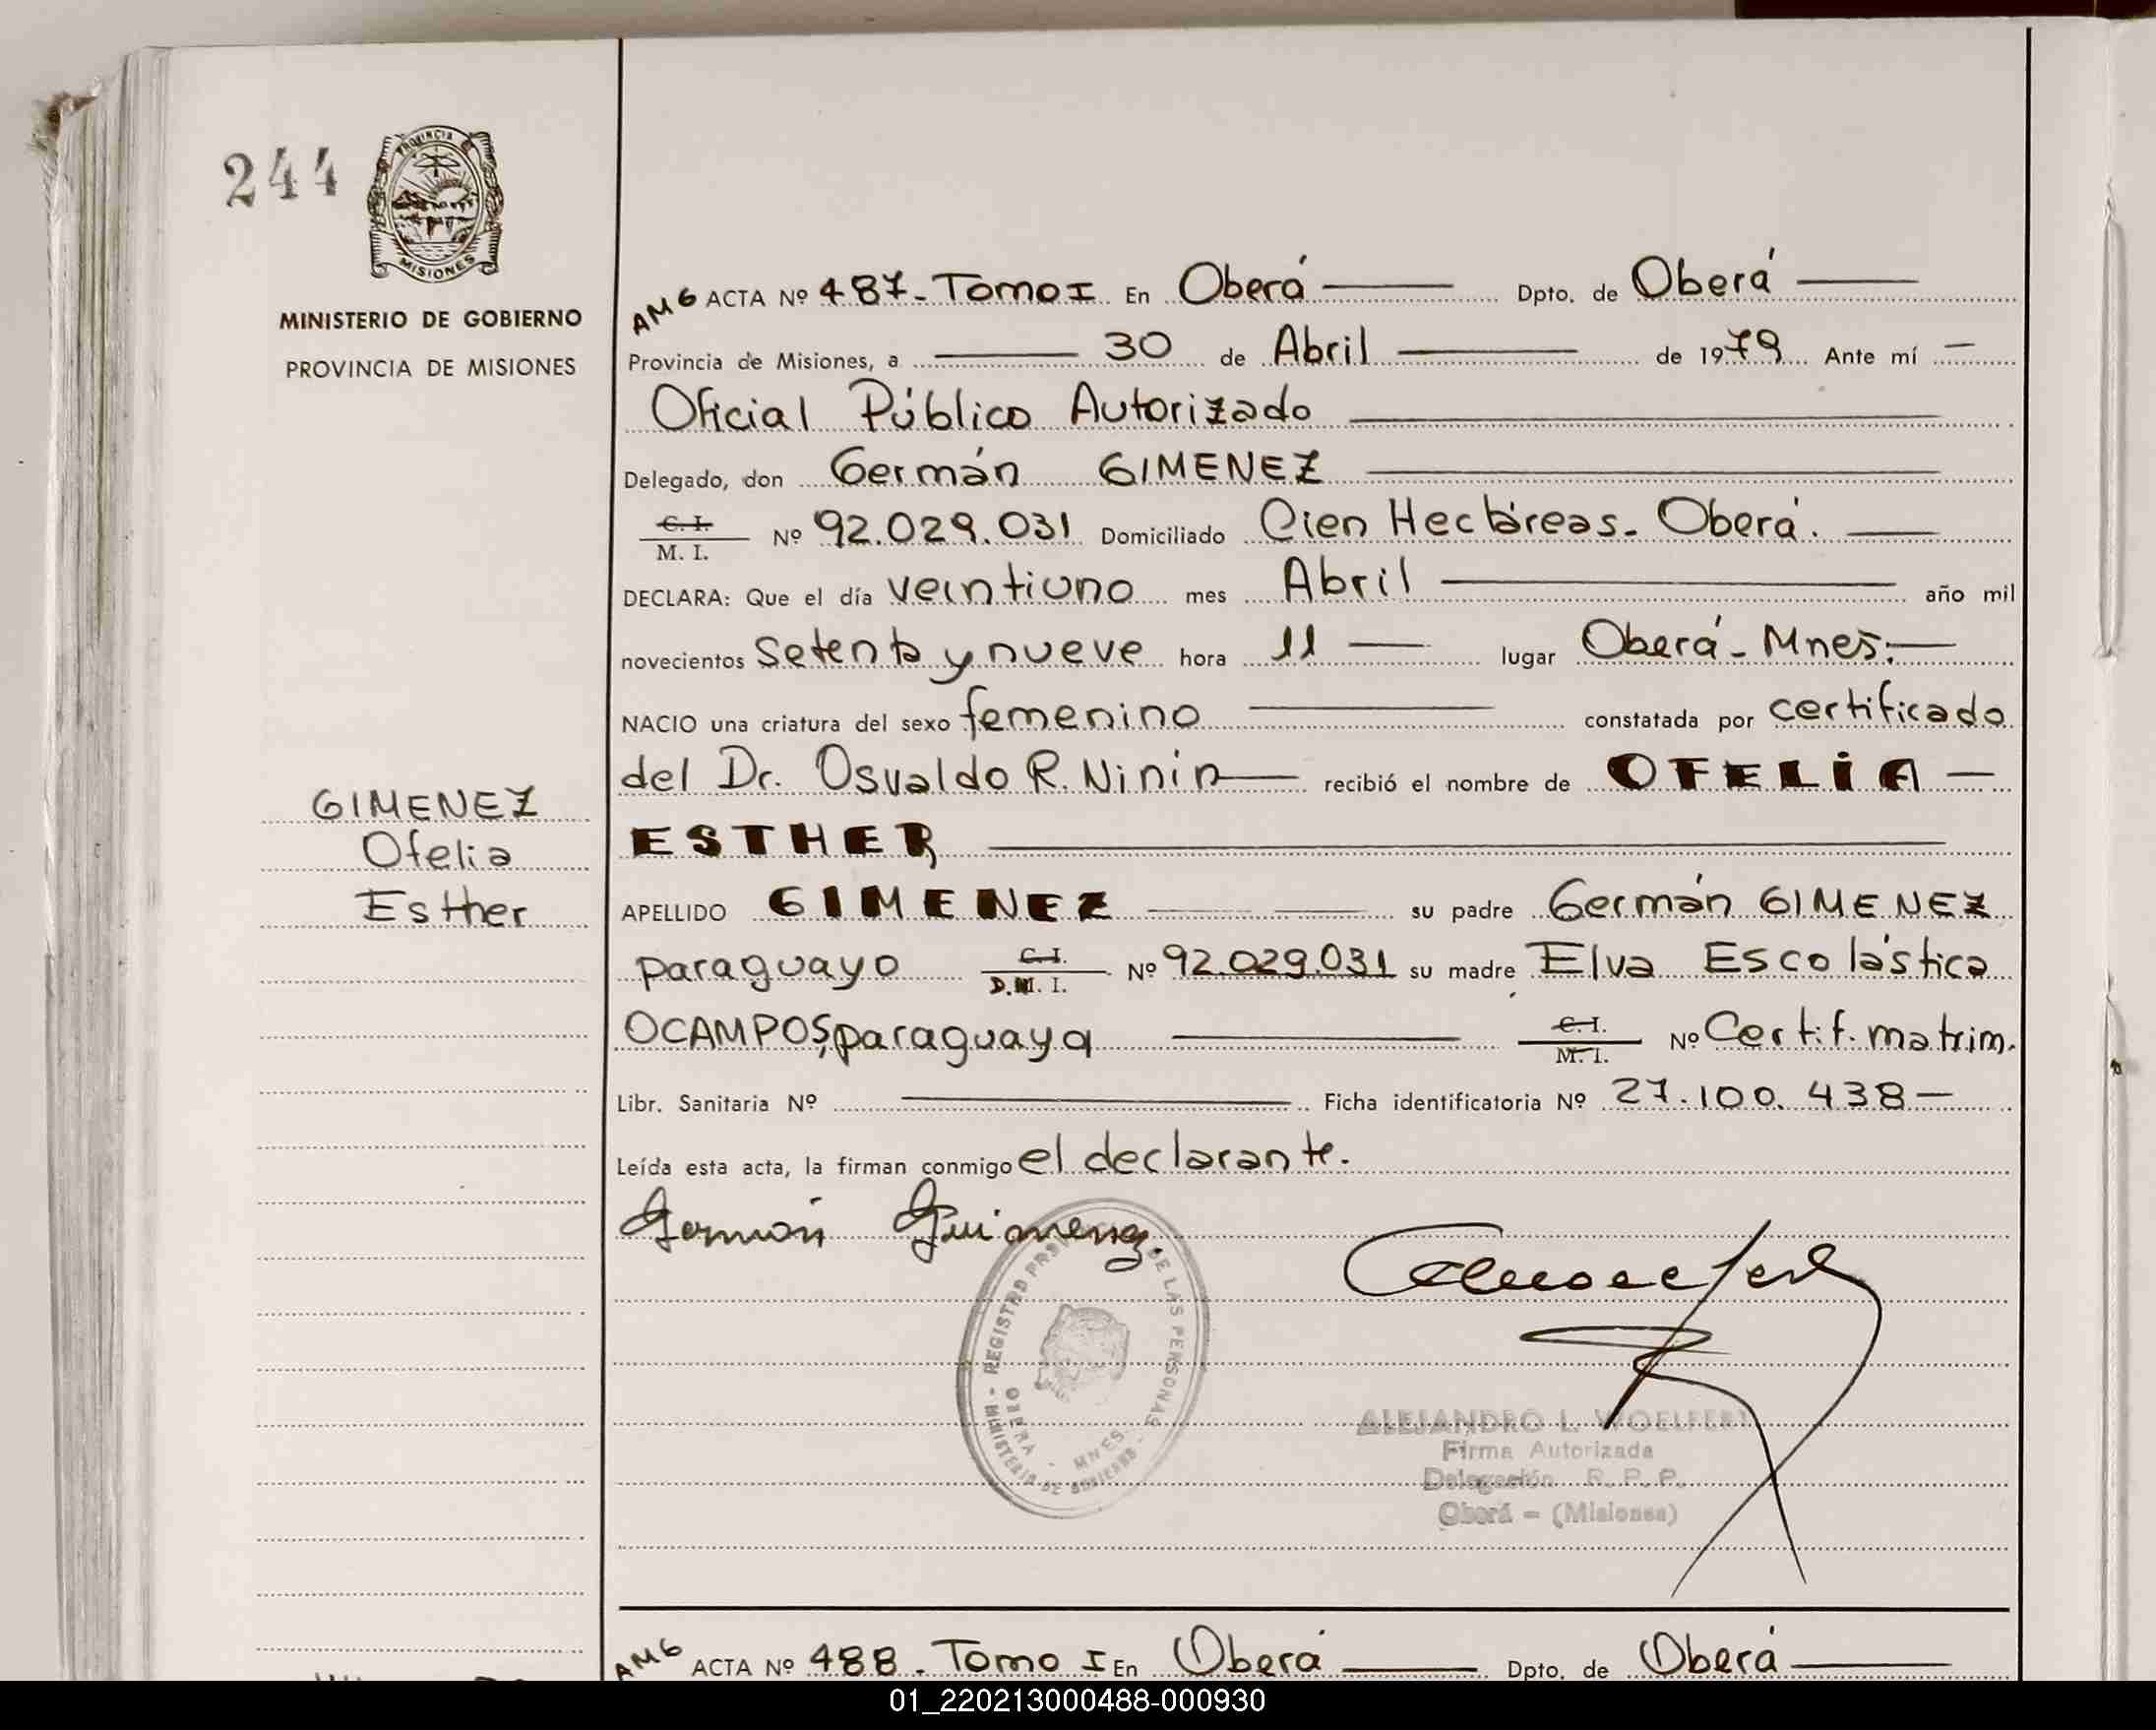 244
PROVINCIA
MISIONES
MINISTERIO DE GOBIERNO
PROVINCIA DE MISIONES
AMG ACTA Nº 487-Tomo I En Oberá Dpto. de Oberá
Provincia de Misiones, a 30 de Abril de 1979 Ante mí
Oficial Público Autorizado
Delegado, don Germán GIMENEZ
C. I.
M. I. Nº 92.029.031 Domiciliado Cien Hectáreas- Oberá.
DECLARA: Que el día veintiuno mes Abril año mil
novecientos setenta y nueve hora 11 lugar Oberá- Mnes.
NACIO una criatura del sexo femenino constatada por certificado
del Dr. Osvaldo R. Ninin recibió el nombre de OFELIA
ESTHER
GIMENEZ
Ofelia
Esther
APELLIDO GIMENEZ su padre Germán GIMENEZ
paraguayo C. I.
D.N. I. Nº 92.029.031 su madre Elva Escolástica
OCAMPOS, paraguaya C. I.
M. I. Nº Certif. matrim.
Libr. Sanitaria Nº Ficha identificatoria Nº 27.100.438
Leída esta acta, la firman conmigo el declarante.
Germán Guimenez.
MINISTERIO DE GOBIERNO - REGISTRO DE LAS PERSONAS
OBERA - MNES
ALEJANDRO L. WOELFERT
Firma Autorizada
Delegación R. P. P.
Oberá - (Misiones)
AMG ACTA Nº 488. Tomo I En Oberá Dpto. de Oberá
01_220213000488-000930